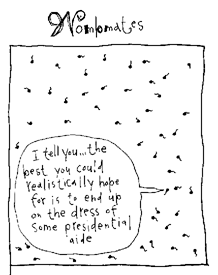 Wombmates
I tell you...the
best you could
realistically hope
for is to end up
on the dress of
some presidential
aide